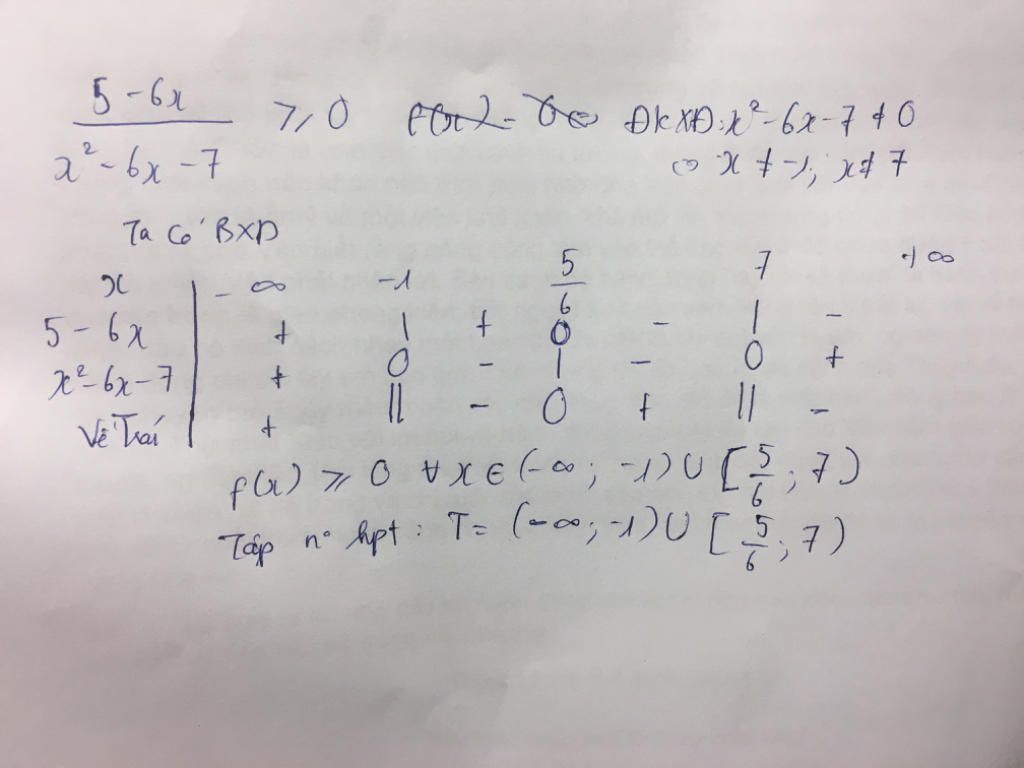 5 - 6x / x² - 6x - 7 ⩾ 0 ĐKXĐ: x² - 6x - 7 ≠ 0
⇔ x ≠ -1; x ≠ 7
Ta có BXD
x -∞ -1 5/6 7 +∞
5 - 6x + | + 0 - | -
x² - 6x - 7 + 0 - | - 0 +
Vế Trái + || - 0 + || -
f(x) ⩾ 0 ∀ x ∈ (-∞; -1) ∪ [5/6; 7)
Tập n° hpt: T = (-∞; -1) ∪ [5/6; 7)